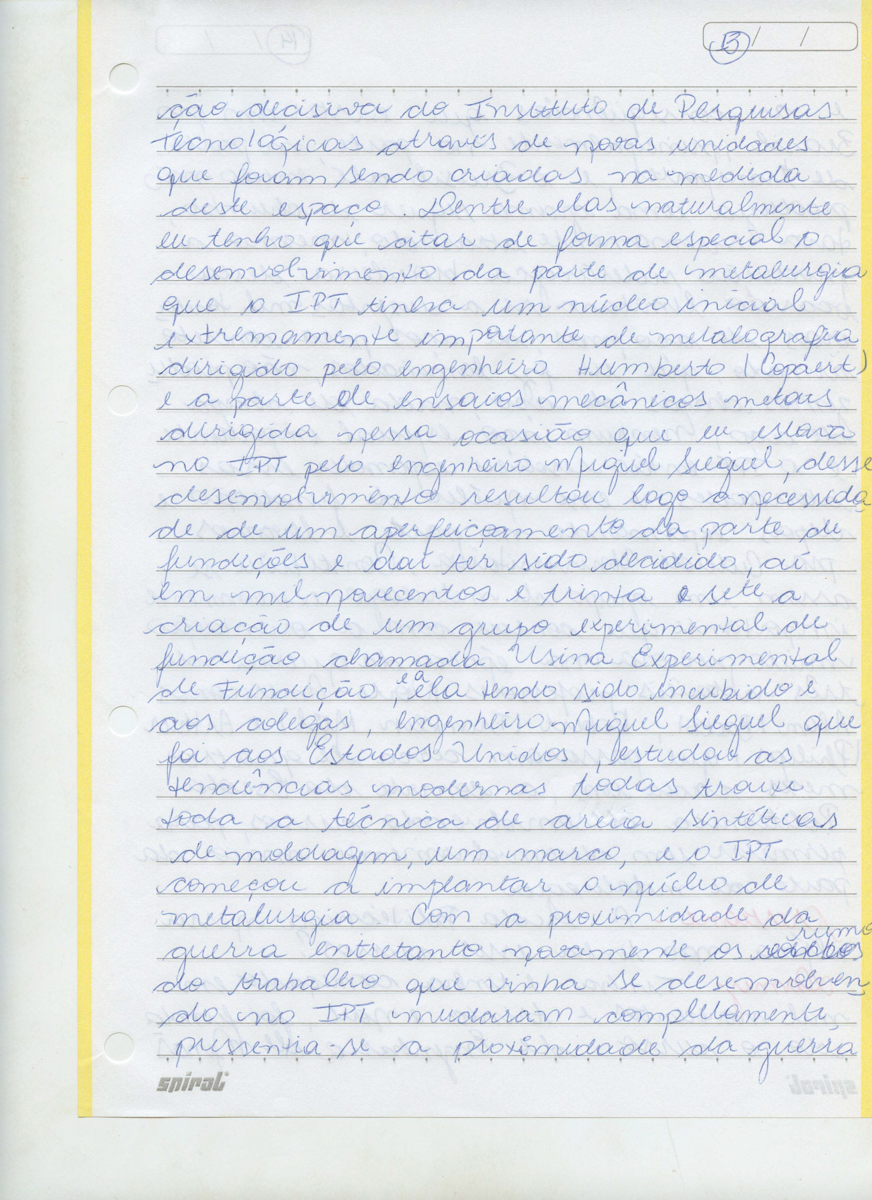 13 / /
ção decisiva do Instituto de Pesquisas
Tecnológicas através de novas unidades
que foram sendo criadas na medida
deste espaço. Dentre elas naturalmente
eu tenho que citar de forma especial o
desenvolvimento da parte de metalurgia
que o IPT tinha um núcleo inicial
extremamente importante de metalografia
dirigido pelo engenheiro Humberto (Copaert)
e a parte de ensaios mecânicos metais
dirigida nessa ocasião que eu estava
no IPT pelo engenheiro Miguel Sieguel, desse
desenvolvimento resultou logo a necessida
de de um aperfeiçoamento da parte de
fundições e daí ter sido decidido, aí
em mil novecentos e trinta e sete a
criação de um grupo experimental de
fundição chamada Usina Experimental
de Fundição, e a ela tendo sido incubido e
aos colegas, engenheiro Miguel Sieguel que
foi aos Estados Unidos, estudar as
tendências modernas todas trouxe
toda a técnica de areia sintéticas
de moldagem, um marco, e o IPT
começou a implantar o núcleo de
metalurgia. Com a proximidade da
guerra entretanto novamente os rumos
do trabalho que vinha se desenvolven
do no IPT mudaram completamente,
pressentia-se a proximidade da guerra
spiral